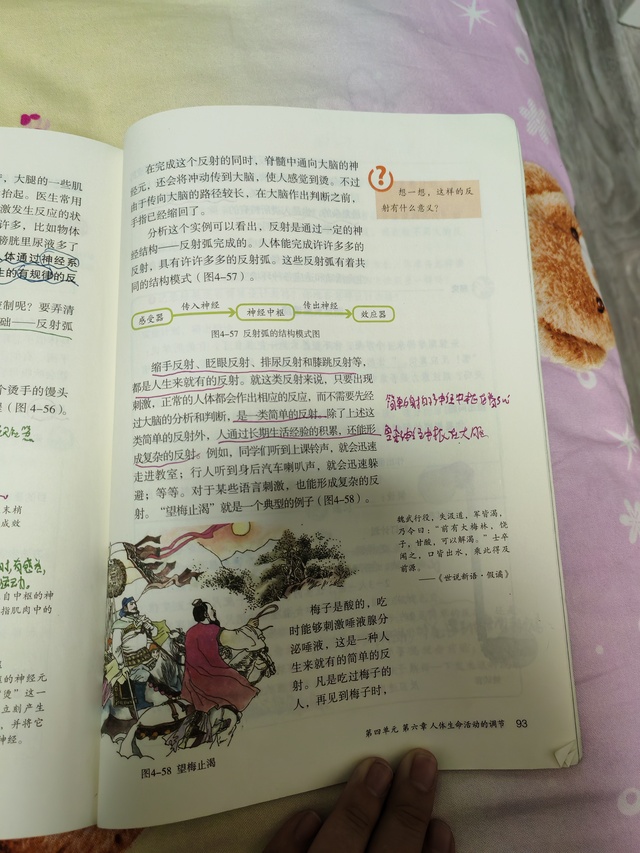 ，大腿的一些肌
抬起。医生常用
激发生反应的状
许多，比如物体
膀胱里尿液多了
人体通过神经系
生的有规律的反
控制呢？要弄清
础——反射弧
个烫手的馒头
（图4-56）。
末梢
成效
自中枢的神
指肌肉中的
的神经元
“烫”这一
立刻产生
，并将它
神经。
在完成这个反射的同时，脊髓中通向大脑的神
经元，还会将冲动传到大脑，使人感觉到烫。不过
由于传向大脑的路径较长，在大脑作出判断之前，
手指已经缩回了。
分析这个实例可以看出，反射是通过一定的神
经结构——反射弧完成的。人体能完成许许多多的
反射，具有许许多多的反射弧。这些反射弧有着共
同的结构模式（图4-57）。
?
想一想，这样的反
射有什么意义？
感受器 传入神经 神经中枢 传出神经 效应器
图4-57 反射弧的结构模式图
缩手反射、眨眼反射、排尿反射和膝跳反射等，
都是人生来就有的反射。就这类反射来说，只要出现
刺激，正常的人体都会作出相应的反应，而不需要先经
过大脑的分析和判断，是一类简单的反射。除了上述这
类简单的反射外，人通过长期生活经验的积累，还能形
成复杂的反射。例如，同学们听到上课铃声，就会迅速
走进教室；行人听到身后汽车喇叭声，就会迅速躲
避；等等。对于某些语言刺激，也能形成复杂的反
射。“望梅止渴”就是一个典型的例子（图4-58）。
魏武行役，失汲道，军皆渴，
乃令曰：“前有大梅林，饶
子，甘酸，可以解渴。”士卒
闻之，口皆出水，乘此得及
前源。
——《世说新语·假谲》
梅子是酸的，吃
时能够刺激唾液腺分
泌唾液，这是一种人
生来就有的简单的反
射。凡是吃过梅子的
人，再见到梅子时，
图4-58 望梅止渴
第四单元 第六章 人体生命活动的调节 93